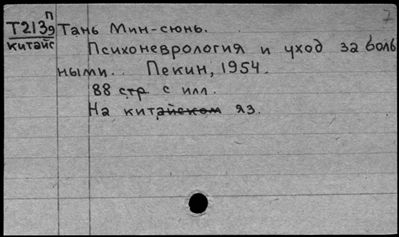 П 7
Т2139 Тань Мин-сюнь.
китайс Психоневрология и уход за боль
ными.. Пекин, 1954.
88 стр с илл.
На китайском яз.